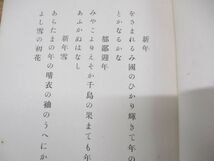 新年
をさまれるみ國のひかり輝きて年の
とかなるかな
都鄙迎年
みやこよりえそか千島の果まても年
あふかぬはなし
新年雪
あらたまの年の晴衣の袖のうへにか
よし雪の初花